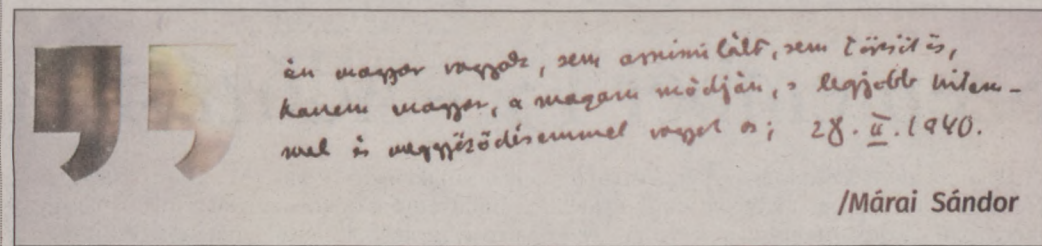 én magyar vagyok, sem asszimilált, sem
hanem magyar, a magam módján, s legjobb hitem-
mel és meggyőződésemmel vagyok az; 28. II. 1940.
/Márai Sándor